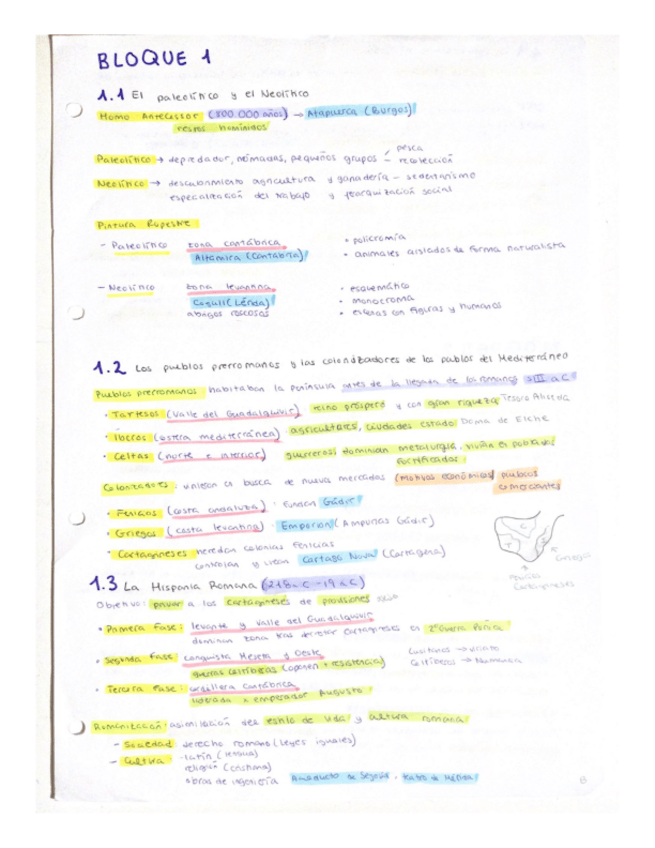 BLOQUE 1
1.1 El paleolítico y el Neolítico
Homo Antecessor (800 000 años) → Atapuerca (Burgos)
restos homínidos
pesca
Paleolítico → depredador, nómadas, pequeños grupos - recolección
Neolítico → descubrimiento agricultura y ganadería - sedentarismo
especialización del trabajo y jerarquización social
Pintura Rupestre
- Paleolítico zona cantábrica • policromía
Altamira (Cantabria) • animales aislados de forma naturalista
- Neolítico zona levantina • esquemático
Cogull (Lérida) • monocroma
abrigos rocosos • escenas con figuras y humanos
1.2 Los pueblos prerromanos y las colonizadores de los pueblos del Mediterráneo
Pueblos prerromanos: habitaban la Península antes de la llegada de los romanos SIII a.C
• Tartesos (Valle del Guadalquivir) reino próspero y con gran riqueza Tesoro Aliseda
• Íberos (costera mediterránea) agricultores, ciudades estado Dama de Elche
• Celtas (norte e interior) guerreros, dominian metalurgia, vivían en poblados
fortificados.
Colonizadores: vinieron en busca de nuevos mercados (motivos económicos) pueblos
comerciantes
• Fenicios (costa andaluza) fundan Gádir
• Griegos (costa levantina) Emporion (Ampurias Gádir)
• Cartagineses heredan colonias fenicias
controlan y crean Cartago Nova (Cartagena)
Griegos
Fenicios
Cartagineses
1.3 La Hispania Romana (218a.C - 19 a.C)
Objetivo: privar a los cartagineses de provisiones
• Primera Fase: levante y Valle del Guadalquivir
dominan zona tras derrotar cartagineses en 2ª Guerra Púnica
• Segunda Fase: conquista Meseta y Oeste Lusitanos → Viriato
guerras celtíberas (oponen + resistencia) Celtíberos → Numancia
• Tercera Fase: cordillera cantábrica
liderada x emperador Augusto
Romanización: asimilación del estilo de vida y cultura romana
- Sociedad: derecho romano (Leyes iguales)
- Cultura • latín (lengua)
religión (cristiana)
obras de ingeniería Acueducto de Segovia, teatro de Mérida